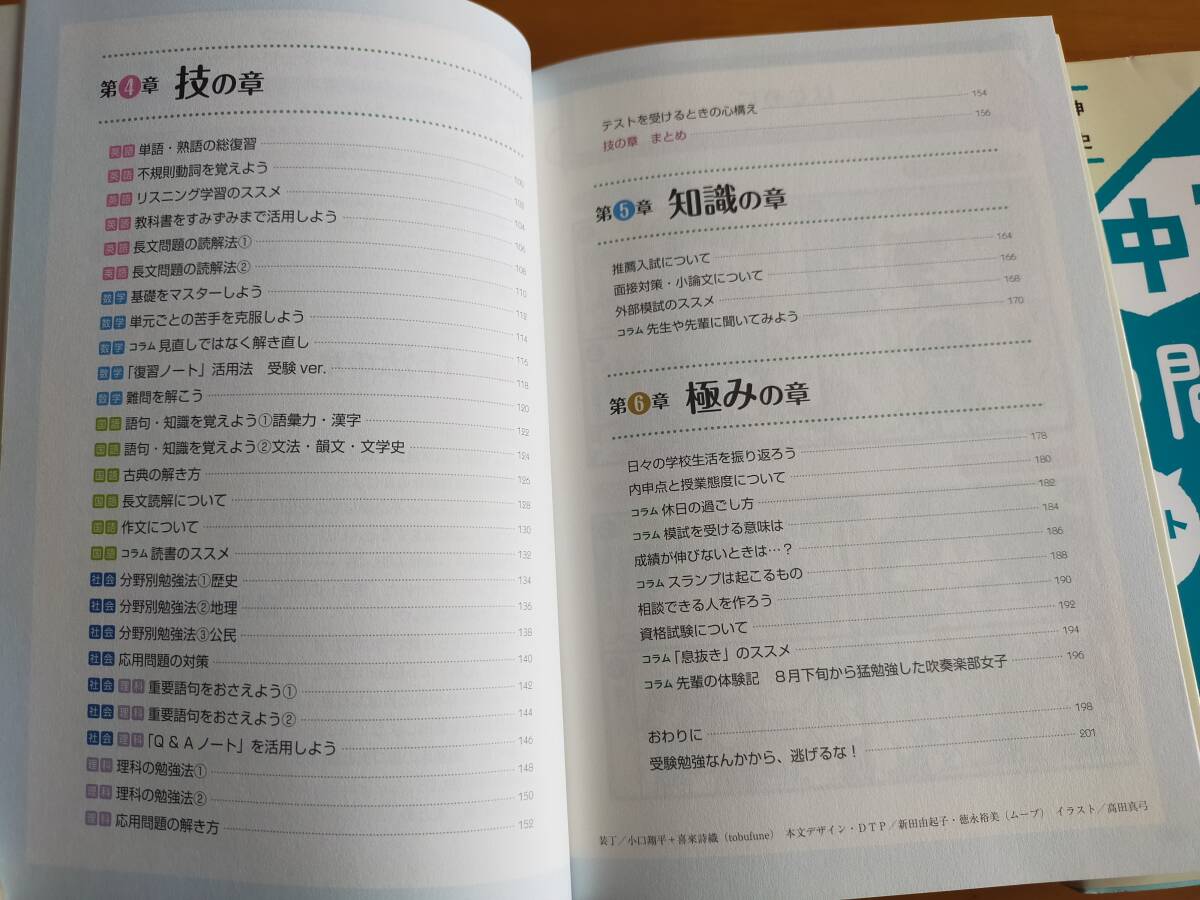 第4章 技の章
英語 単語・熟語の総復習 100
英語 不規則動詞を覚えよう 102
英語 リスニング学習のススメ 104
英語 教科書をすみずみまで活用しよう 106
英語 長文問題の読解法① 108
英語 長文問題の読解法② 110
数学 基礎をマスターしよう 112
数学 単元ごとの苦手を克服しよう 114
数学 コラム 見直しではなく解き直し 116
数学 「復習ノート」活用法　受験 ver. 118
数学 難問を解こう 120
国語 語句・知識を覚えよう①語彙力・漢字 122
国語 語句・知識を覚えよう②文法・韻文・文学史 124
国語 古典の解き方 126
国語 長文読解について 128
国語 作文について 130
国語 コラム 読書のススメ 132
社会 分野別勉強法①歴史 134
社会 分野別勉強法②地理 136
社会 分野別勉強法③公民 138
社会 応用問題の対策 140
社会 理科 重要語句をおさえよう① 142
社会 理科 重要語句をおさえよう② 144
社会 理科 「Q & A ノート」を活用しよう 146
理科 理科の勉強法① 148
理科 理科の勉強法② 150
理科 応用問題の解き方 152
テストを受けるときの心構え 154
技の章　まとめ 156
第5章 知識の章
推薦入試について 164
面接対策・小論文について 166
外部模試のススメ 168
コラム 先生や先輩に聞いてみよう 170
第6章 極みの章
日々の学校生活を振り返ろう 178
内申点と授業態度について 180
コラム 休日の過ごし方 182
コラム 模試を受ける意味は 184
成績が伸びないときは…？ 186
コラム スランプは起こるもの 188
相談できる人を作ろう 190
資格試験について 192
コラム 「息抜き」のススメ 194
コラム 先輩の体験記　８月下旬から猛勉強した吹奏楽部女子 196
おわりに 198
受験勉強なんかから、逃げるな！ 201
装丁／小口翔平＋喜來詩織（tobufune）　本文デザイン・ＤＴＰ／新田由起子・徳永裕美（ムーブ）　イラスト／高田真弓
中
ト